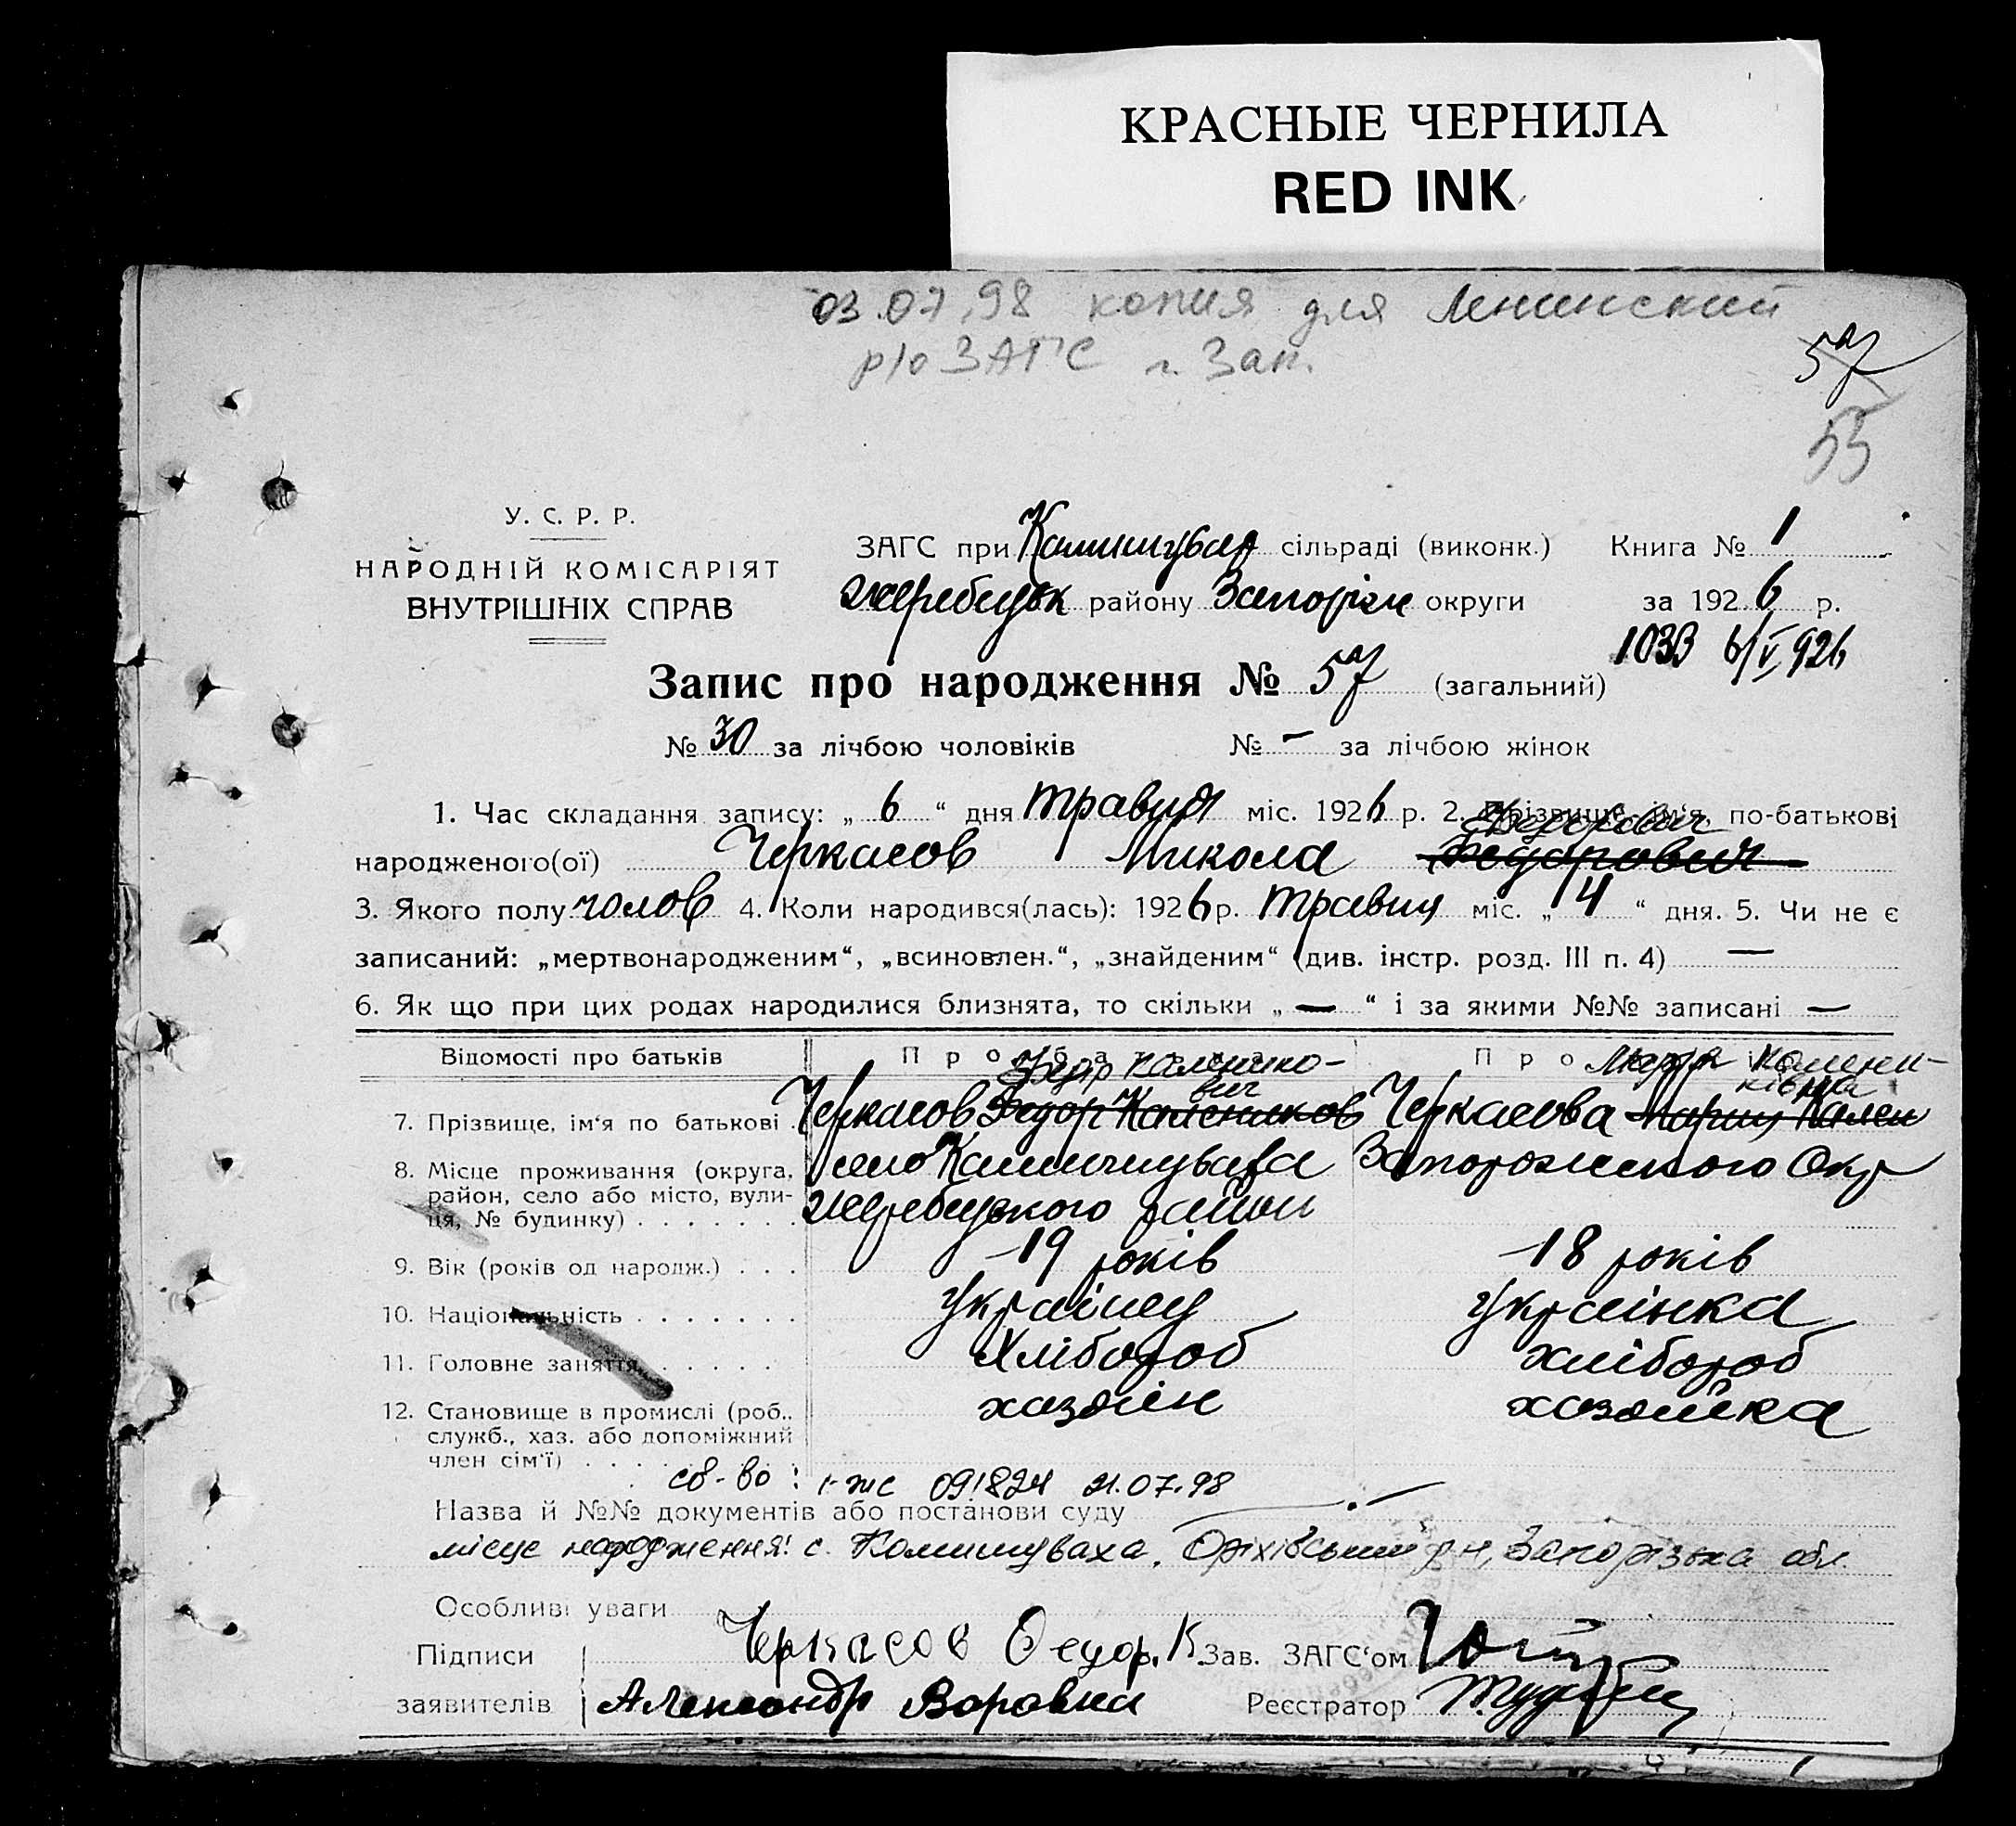 КРАСНЫЕ ЧЕРНИЛА
RED INK
03.07.98 копия для Ленинский
р/о ЗАГС г. Зап.
57
55
У. С. Р. Р.
НАРОДНІЙ КОМІСАРІЯТ
ВНУТРІШНІХ СПРАВ
ЗАГС при Камишувах сільраді (виконк.) Книга № 1
Жеребецьк району Запоріж округи за 1926 р.
1033 6/V 926
Запис про народження № 57 (загальний)
№ 30 за лічбою чоловіків № — за лічбою жінок
1. Час складання запису: „ 6 “ дня травня міс. 1926 р. 2. Прізвище, ім‘я, по-батькові
Федорович
народженого(ої) Черкасов Микола Федорович
3. Якого полу чолов 4. Коли народився(лась): 1926 р. травня міс. „ 4 “ дня. 5. Чи не є
записаний: „мертвонародженим“, „всиновлен.“, „знайденим“ (див. інстр. розд. III п. 4) —
6. Як що при цих родах народилися близнята, то скільки „ — “ і за якими №№ записані —
Відомості про батьків Про батька Про матір
Федір Каленико-
вич
Марія Калени-
ківна
7. Прізвище, ім‘я по батькові Черкасов Федор Калеников Черкасова Мария Кален
8. Місце проживання (округа, село Камишуваха Запорожского Окр
район, село або місто, вули-
ця, № будинку) Жеребецького район
9. Вік (років од народж.) 19 років 18 років
10. Національність українец українка
11. Головне заняття Хлібороб хлібороб
12. Становище в промислі (роб., хазяін хазяйка
служб., хаз. або допоміжний
член сім‘ї)
св-во: I-жс 091824 21.07.98
Назва й №№ документів або постанови суду —
місце народження: с. Комишуваха, Оріхівський р-н, Запорізька обл.
Особливі уваги
Підписи Черкасов Федор. К. Зав. ЗАГС‘ом
заявителів Александр Реєстратор